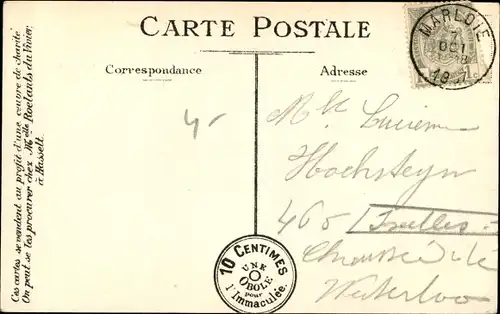 CARTE POSTALE
Correspondance
Adresse
MARLOIE
7
OCT
Ces cartes se vendent au profit d'une œuvre de charité
On peut se les procurer chez Melle Roelants du Vivier,
à Hasselt.
Lucien
Hochsteyn
465 Ixelles
Chaussée de
Waterloo
10 CENTIMES
UNE
OBOLE
pour
l'Immaculée.